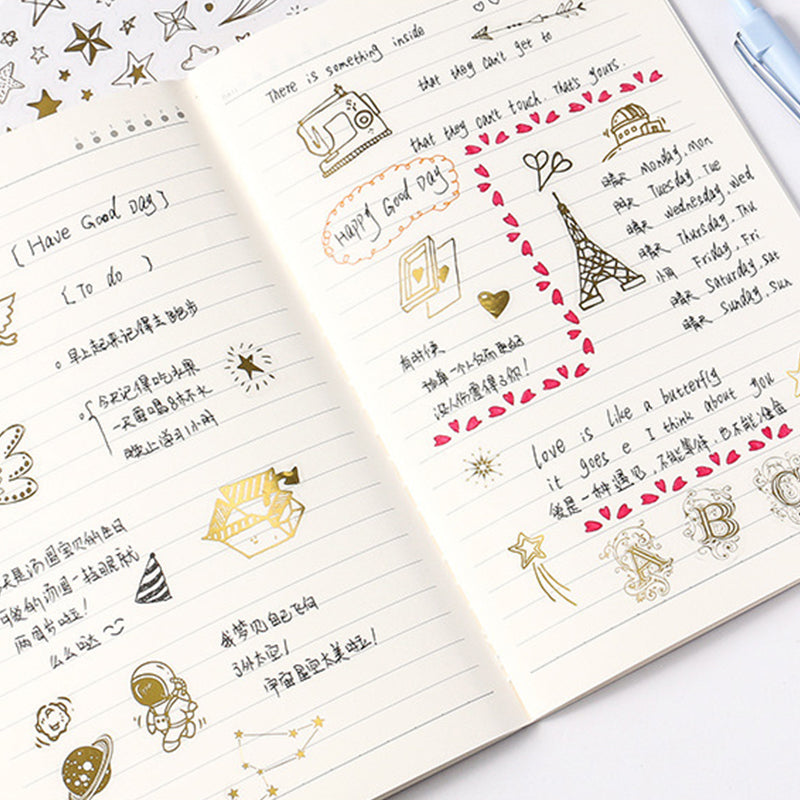 S M T W T F S
[Have Good Day]
[To do ]
早上起来记得去跑步
今天记得吃水果
一天要喝8杯水
晚上学习1小时
天是汤圆宝贝的生日
可爱的汤圆一转眼就
两周岁啦!
么么哒
我梦见自己飞向
了外太空!
宇宙星空太美啦!
There is something inside
that they can't get to
that they can't touch. That's yours.
Happy Good Day
晴天 Monday, Mon
阴天 Tuesday, Tue
晴天 Wednesday, Wed
晴天 Thursday, Thu
小雨 Friday, Fri
晴天 Saturday, Sat
晴天 Sunday, Sun
有时候
一个人
没人伤害得了你!
love is like a butterfly
it goes e I think about you
爱是一种遇见,不能等待,也不能准备
A B C